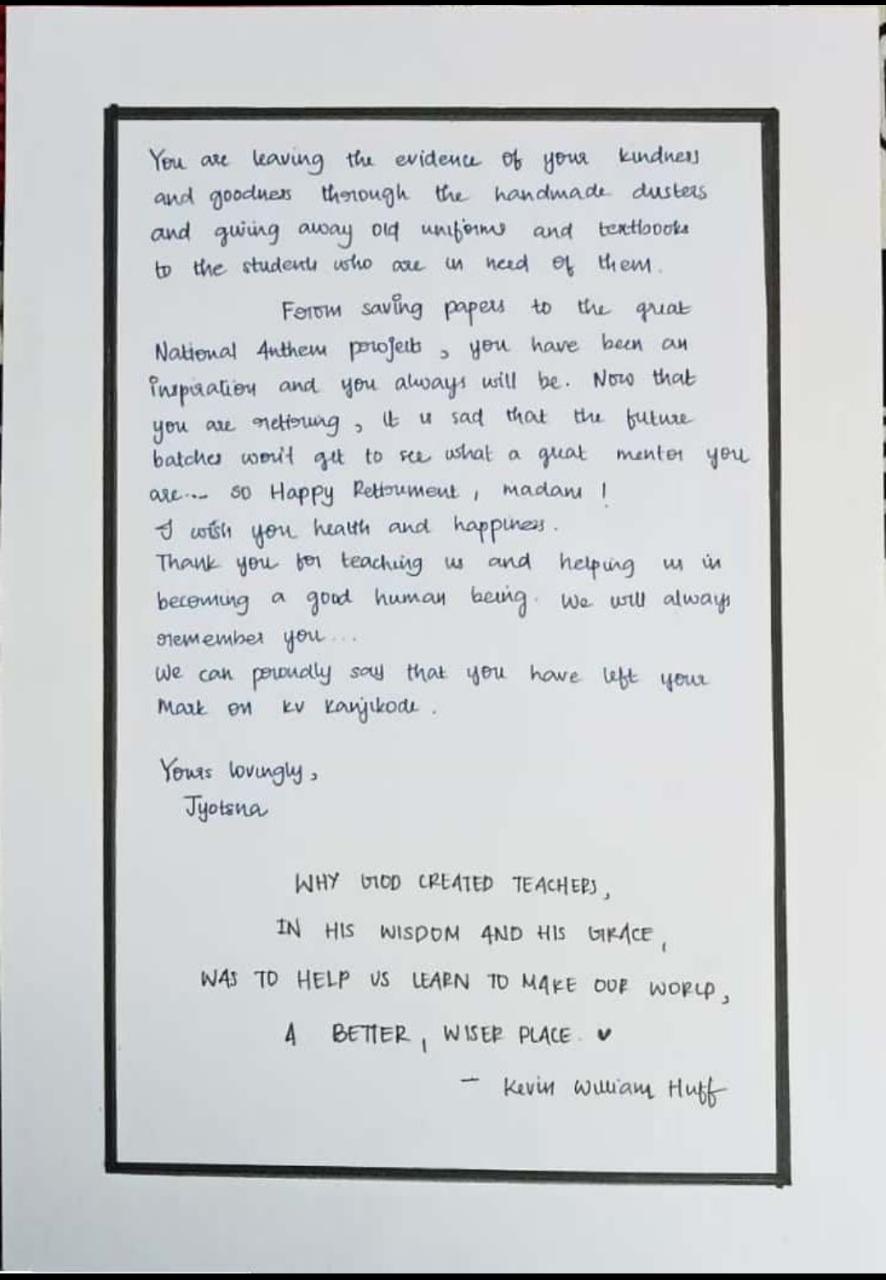 You are leaving the evidence of your kindness
and goodness through the handmade dusters
and giving away old uniforms and textbooks
to the students who are in need of them.
From saving papers to the great
National Anthem projects, you have been an
inspiration and you always will be. Now that
you are retiring, it is sad that the future
batches won't get to see what a great mentor you
are... so Happy Retirement, madam!
I wish you health and happiness.
Thank you for teaching us and helping us in
becoming a good human being. We will always
remember you...
We can proudly say that you have left your
Mark on KV Kanjikode.
Yours lovingly,
Jyotsna
WHY GOD CREATED TEACHERS,
IN HIS WISDOM AND HIS GRACE,
WAS TO HELP US LEARN TO MAKE OUR WORLD,
A BETTER, WISER PLACE. ♥
- Kevin William Huff